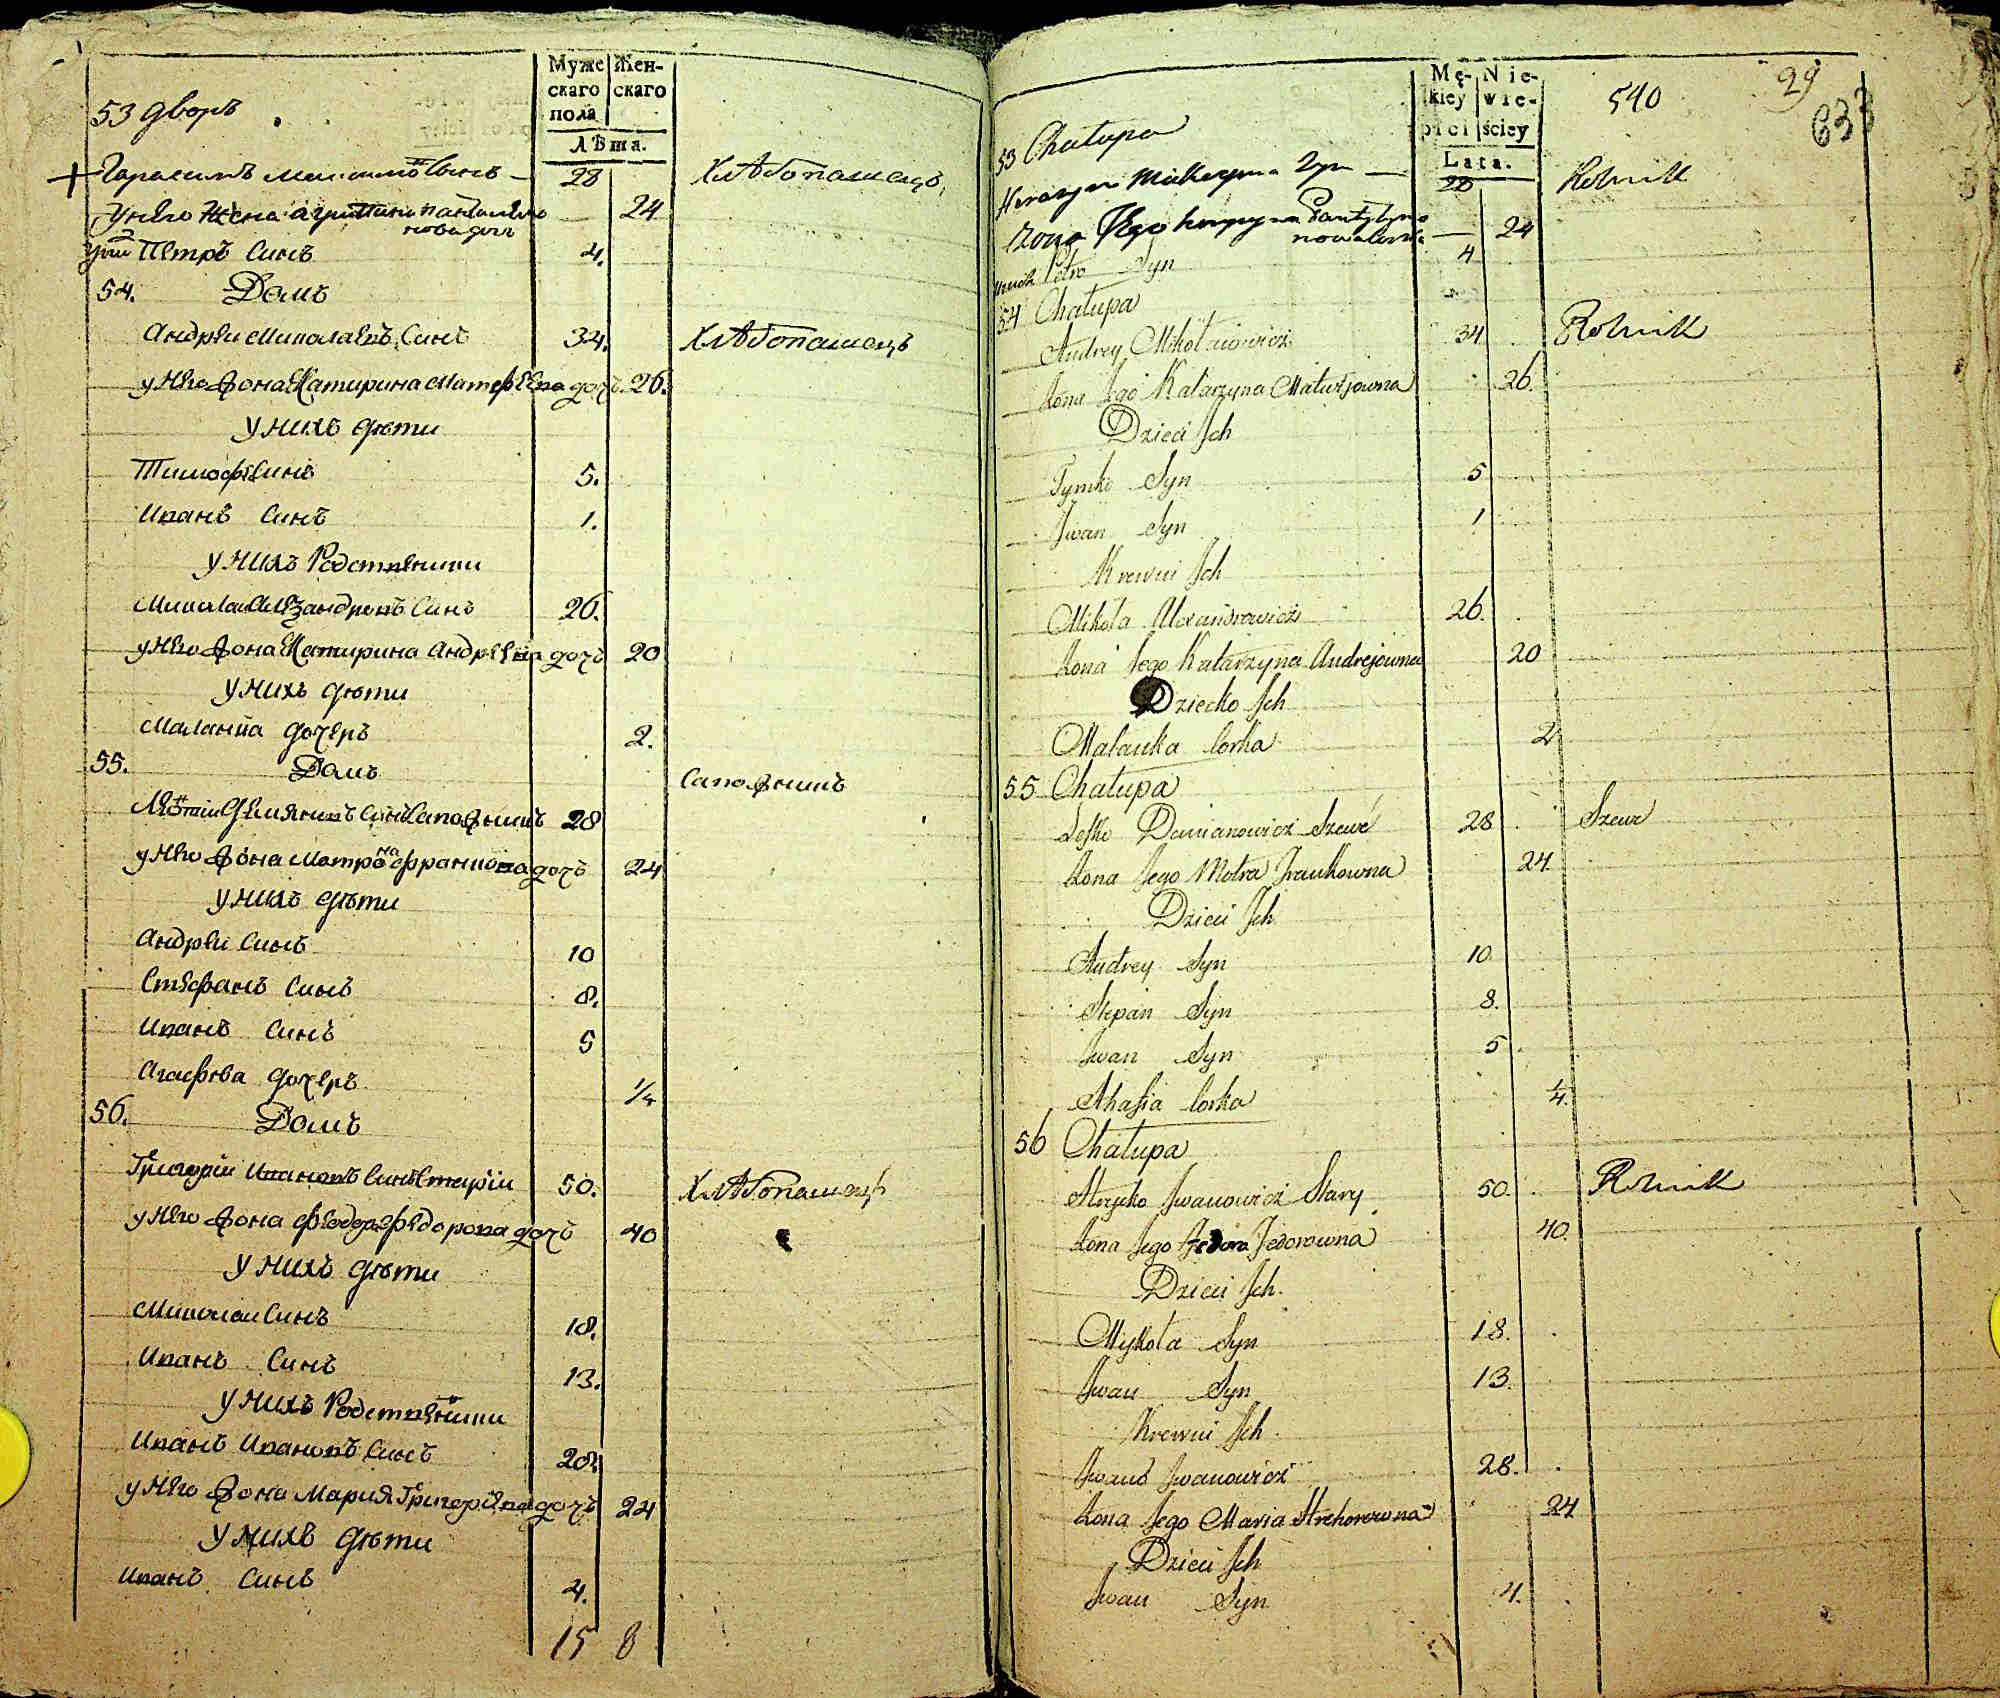 Муже
скаго
пола
Жен-
скаго
Лѣта.
53 дворъ
Гарасимъ Максимовъ Сынъ 28 Хлѣбопашецъ
у него жена агрипина пантилимо 24
нова доч
у них Петръ Синъ 4.
54. Домъ
Андрѣи Миколаевъ Синъ 34. Хлѣбопашецъ
у него Жона Катирина Матфѣева дочъ. 26.
у нихъ дѣти
Тимофѣ Синъ 5.
Иванъ Синъ 1.
у нихъ Родственики
Микола Алѣзандровъ Синъ 26.
у него Жона Катирина Андрѣева дочъ 20
у нихъ дѣти
Маланка дочеръ 2.
55. Домъ
Сапожникъ
Демяновъ Синъ Сапожникъ 28
у него Жона Мотрона Франкова дочъ 24
у нихъ дѣти
Андрѣи Синъ 10
Стефанъ Синъ 8.
Иванъ Синъ 5
Агафѣва дочеръ 1/4
56. Домъ
Григории Ивановъ Синъ Старіи 50. Хлѣбопашецъ
у него Жона Феодора Федорова дочъ 40
у нихъ дѣти
Миколаи Синъ 18.
Иванъ Синъ 13.
у нихъ Родственики
Иванъ Ивановъ Синъ 28.
у него Жона Мария Григориева дочъ 24
у нихъ дѣти
Иванъ Синъ 4.
15 8
Mę-
kiey
płci
Nie-
wie-
ściey
Lata.
540
29
633
53 Chałupa
Herasym Maksyma Syn 28 Rolnik
Żona Jego Pantylymo 24
nowa Corka
Petro Syn 4
54 Chałupa
Andrey Mikołaiowicz 34 Rolnik
Żona Jego Katarzyna Matwijowna 26.
Dzieci Jch
Tymko Syn 5
Jwan Syn 1
Krewni Jch
Mikoła Alexandrowicz 26.
Żona Jego Katarzyna Andrejowna 20
Dziecko Jch
Małanka Corka 2
55 Chałupa
Leśko Demianowicz Szewc 28 Szewc
Żona Jego Motra Frankowna 24.
Dzieci Jch
Andrey Syn 10
Stepan Syn 8.
Jwan Syn 5
Ahafia Corka 1/4.
56 Chałupa
Hryćko Jwanowicz Stary 50. Rolnik
Żona Jego Fedora Fedorowna 40.
Dzieci Jch.
Mykoła Syn 18.
Jwan Syn 13.
Krewni Jch
Jwan Jwanowicz 28.
Żona Jego Maria Hrehorowna 24
Dzieci Jch
Jwan Syn 4.